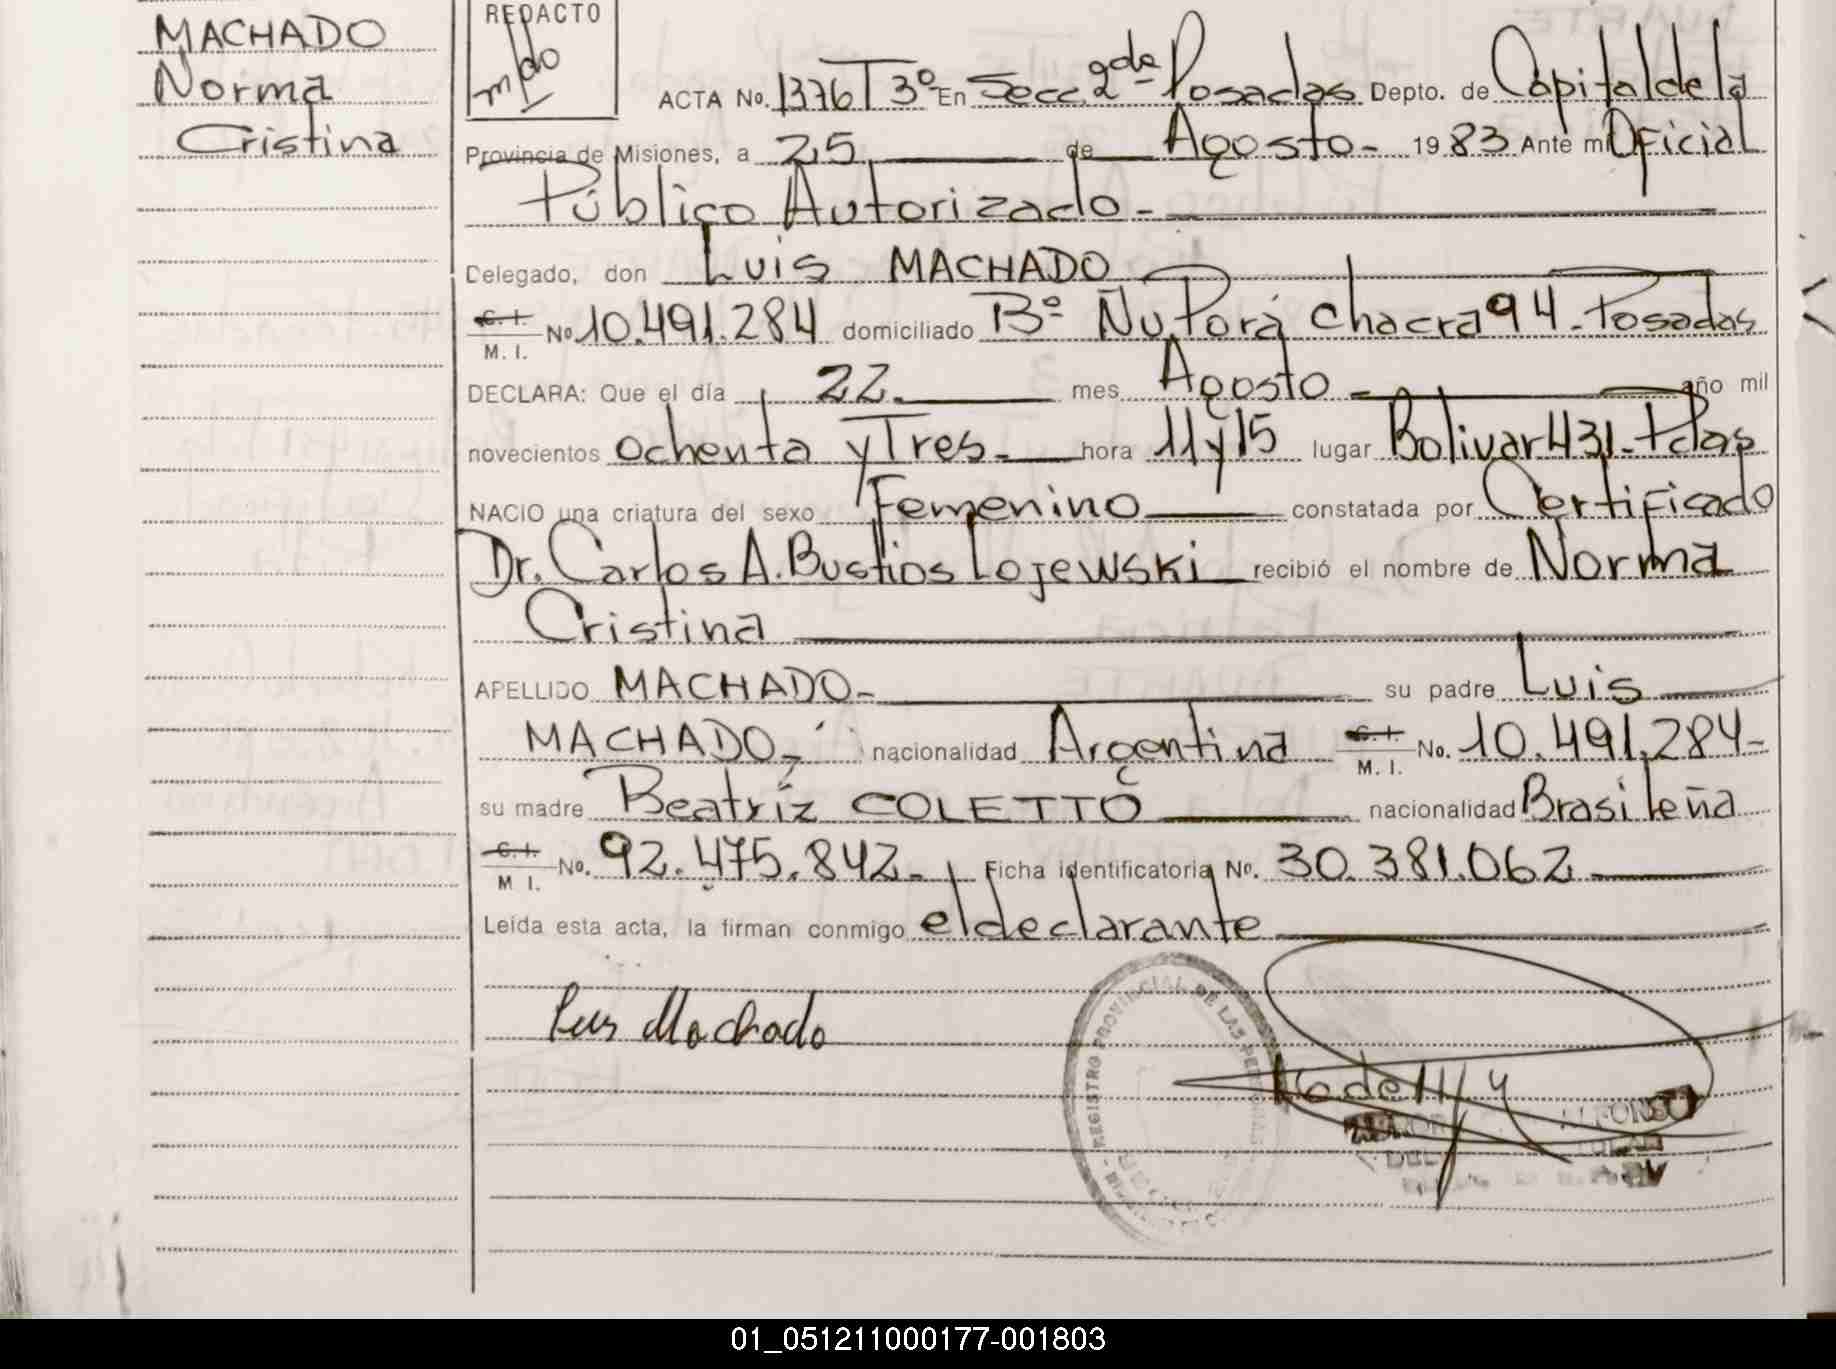 MACHADO
Norma
Cristina
REDACTO
ACTA No. 1376 T 3º En Secc. 2da Posadas Depto. de Capital de la
Provincia de Misiones, a 25 de Agosto- 1983 Ante mi Oficial
Público Autorizado-
Delegado, don Luis MACHADO
C.I. M. I. No 10.491.284 domiciliado Bº Ñu Porá Chacra 94-Posadas
DECLARA: Que el día 22- mes Agosto- año mil
novecientos ochenta y Tres- hora 11 y 15 lugar Bolivar 431-Pdas
NACIO una criatura del sexo Femenino constatada por Certificado
Dr. Carlos A. Bustios Lojewski recibió el nombre de Norma
Cristina
APELLIDO MACHADO- su padre Luis
MACHADO- nacionalidad Argentina C.I. M. I. No. 10.491.284-
su madre Beatríz COLETTO nacionalidad Brasileña
C.I. M I. No. 92.475.842- Ficha identificatoria No. 30.381.062
Leída esta acta, la firman conmigo el declarante
Luis Machado
REGISTRO PROVINCIAL DE LAS PERSONAS
ALFONSO
01_051211000177-001803